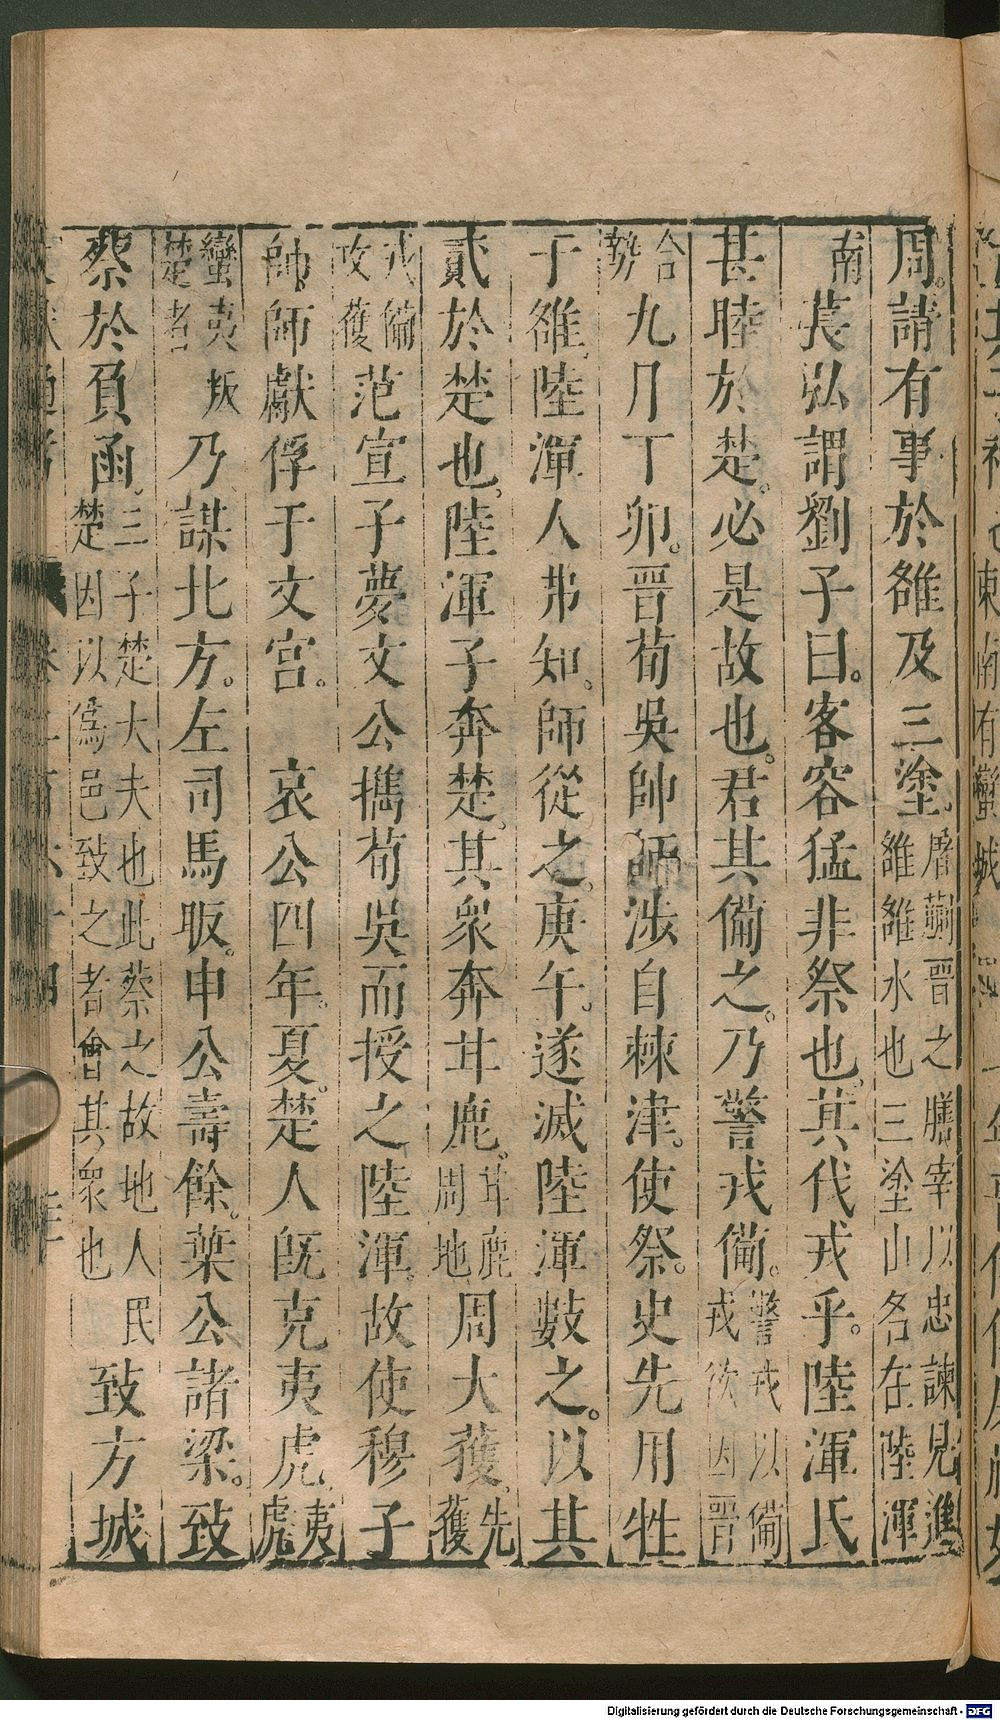 周。請有事於雒及三塗。屠蒯晋之膳宰以忠諫見進雒雒水也三塗山名在陸渾
南萇弘謂劉子曰。客容猛非祭也。其伐戎乎。陸渾氏
甚睦於楚。必是故也。君其備之。乃警戎備。警戎以備戎欲因晋
合勢九月丁卯。晋荀吳帥師涉自棘津。使祭。史先用牲
于雒。陸渾人弗知。師從之。庚午。遂滅陸渾數之。以其
貳於楚也。陸渾子奔楚。其衆奔甘鹿。甘鹿周地周大獲。先獲
戎備攻獲范宣子夢文公攜荀吳而授之陸渾。故使穆子
帥。師獻俘于文宮。 哀公四年。夏。楚人旣克夷虎夷虎
蠻夷叛楚者乃謀北方。左司馬眅。申公壽餘。葉公諸梁。致
蔡於負函。三子楚大夫也此蔡之故地人民楚因以爲邑致之者會其衆也致方城
Digitalisierung gefördert durch die Deutsche Forschungsgemeinschaft - DFG